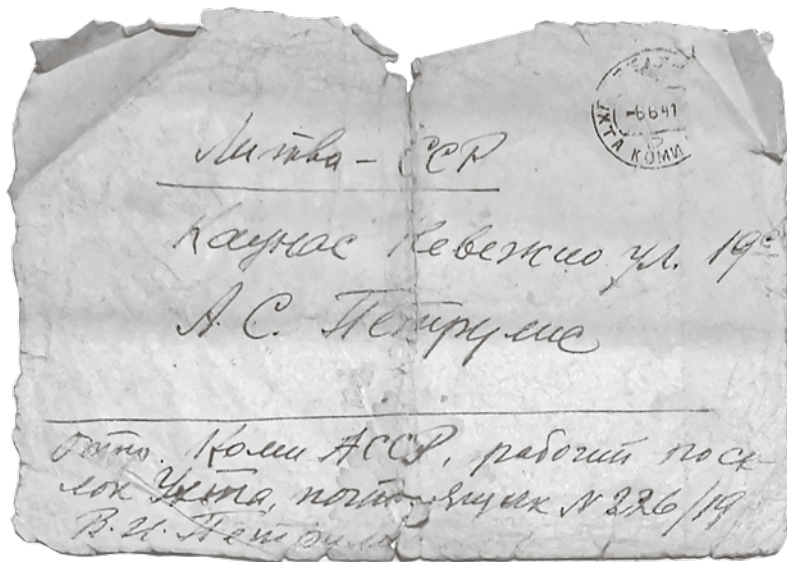 УХТА КОМИ
-6 6 41
Литва – ССР
Каунас Невежио ул. 19с
А. С. Петрулис
отпр. Коми АССР, рабочий посе-
лок Ухта, почт. ящик N 226/19
В. И.